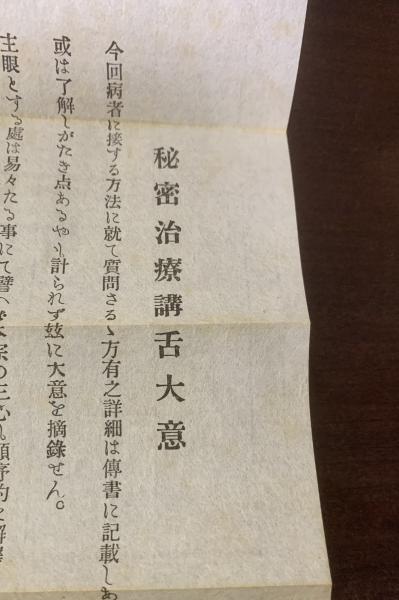 秘密治療講舌大意
今回病者に接する方法に就て質問さるゝ方有之詳細は傳書に記載しあ
或は了解しがたき点あるやも計られず玆に大意を摘錄せん。
主眼とする處は易々たる事にて譬へ